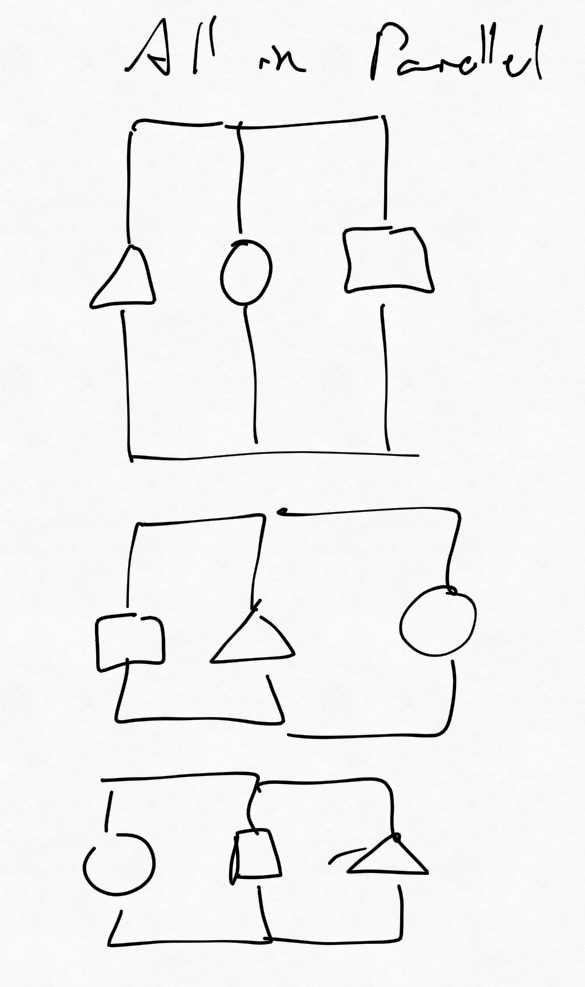 All in Parallel